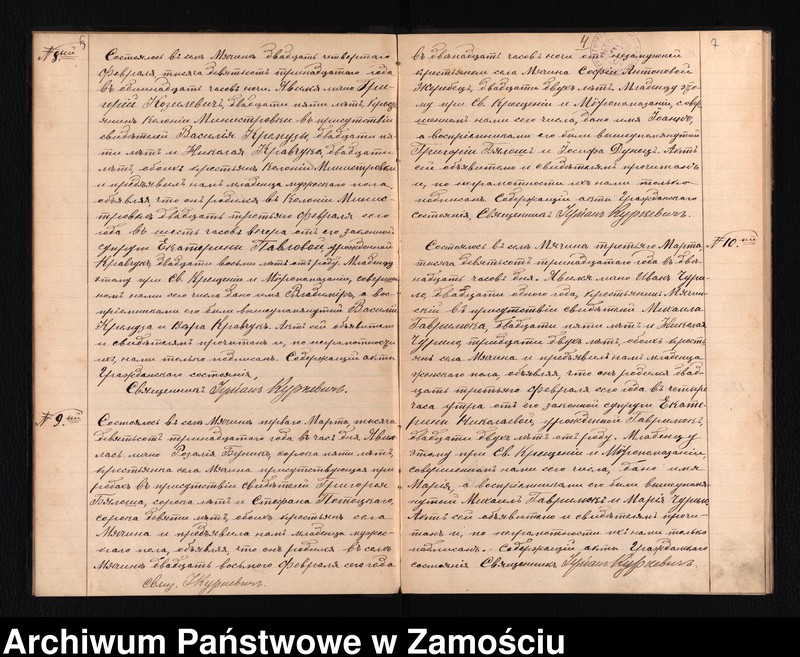 № 8.ый
Состоялось въ селѣ Мячинѣ двадцать четвертаго
Февраля тысяча девятьсотъ тринадцатаго года
въ одиннадцать часовъ ночи. Явился лично Гри-
горій двадцати пяти лѣтъ, крест
янинъ Колоніи Министровки въ присутствіи
свидѣтелей Василія двадцати пя-
ти лѣтъ и Николая Кравчука, двадцати
лѣтъ, обоихъ крестьянъ Колоніи Министровки
и предъявилъ намъ младенца мужескаго пола,
объявляя, что онъ родился въ Колоніи Минис-
тровкѣ двадцать третьяго Февраля сего
года въ шесть часовъ вечера отъ его законной
супруги Екатерины Павловой, урожденной
Кравчукъ, двадцати восьми лѣтъ отъ роду. Младенцу
этому при Св. Крещеніи и Мѵропомазаніи, соверше
номъ нами сего числа дано имя Владиміръ, а вос-
пріемниками его были вышеупомянутый Василій
и Варва Кравчукъ. Актъ сей объявителю
и свидѣтелямъ прочитанъ и, по неграмотности
ихъ, нами только подписанъ. Содержащій акты
Гражданскаго состоянія,
Священникъ Куркевичъ.
№ 9.ый
Состоялось въ селѣ Мячинѣ перваго Марта, тысяча
девятьсотъ тринадцатаго года въ часъ дня. Яви-
лась лично Розалія сорока пяти лѣтъ,
крестьянка села Мячина присутствующая при
родахъ въ присутствіи свидѣтелей Григорія
сорока лѣтъ и Стефана Потоцкаго,
сорока девяти лѣтъ, обоихъ крестьянъ села
Мячина и предъявила намъ младенца мужес-
каго пола, объявляя, что онъ родился въ селѣ
Мячинѣ двадцать восьмого Февраля сего года
Свящ. Куркевичъ.
4
7
въ двѣнадцать часовъ ночи отъ незамужней
крестьянки села Мячина Софіи Антоновой
двадцати двухъ лѣтъ. Младенцу это-
му при Св. Крещеніи и Мѵропомазаніи, совер
шенномъ нами сего числа, дано имя Іоаннъ,
а воспріемниками его были вышеупомянутый
Григорій и Іосифа Актъ
сей объявителю и свидѣтелямъ прочитанъ
и, по неграмотности ихъ нами только
подписанъ. Содержащій акты Гражданскаго
состоянія, Священникъ Куркевичъ.
№ 10.ый
Состоялось въ селѣ Мячинѣ третьяго Марта,
тысяча девятьсотъ тринадцатаго года въ двѣ-
надцать часовъ дня. Явился лично Иванъ Чури-
ло, двадцати одного года, крестьянинъ Мячин-
скій въ присутствіи свидѣтелей Михаила
Гаврилюка, двадцати пяти лѣтъ и Николая
Чурило, тридцати двухъ лѣтъ, обоихъ кресть
янъ села Мячина и предъявилъ намъ младенца
женскаго пола, объявляя, что онъ родился двад-
цать третьяго Февраля сего года въ четыре
часа утра отъ его законной супруги Екате-
рины Николаевой, урожденной Гаврилюкъ,
двадцати двухъ лѣтъ отъ роду. Младенцу
этому при Св. Крещеніи и Мѵропомазаніи,
совершенномъ нами сего числа, дано имя
Марія, а воспріемниками его были вышеупомя-
нутый Михаилъ Гаврилюкъ и Марія Чурило.
Актъ сей объявителю и свидѣтелямъ прочи-
танъ и, по неграмотности ихъ нами только
подписанъ. Содержащій акты Гражданскаго
состоянія Священникъ Куркевичъ.
Archiwum Państwowe w Zamościu